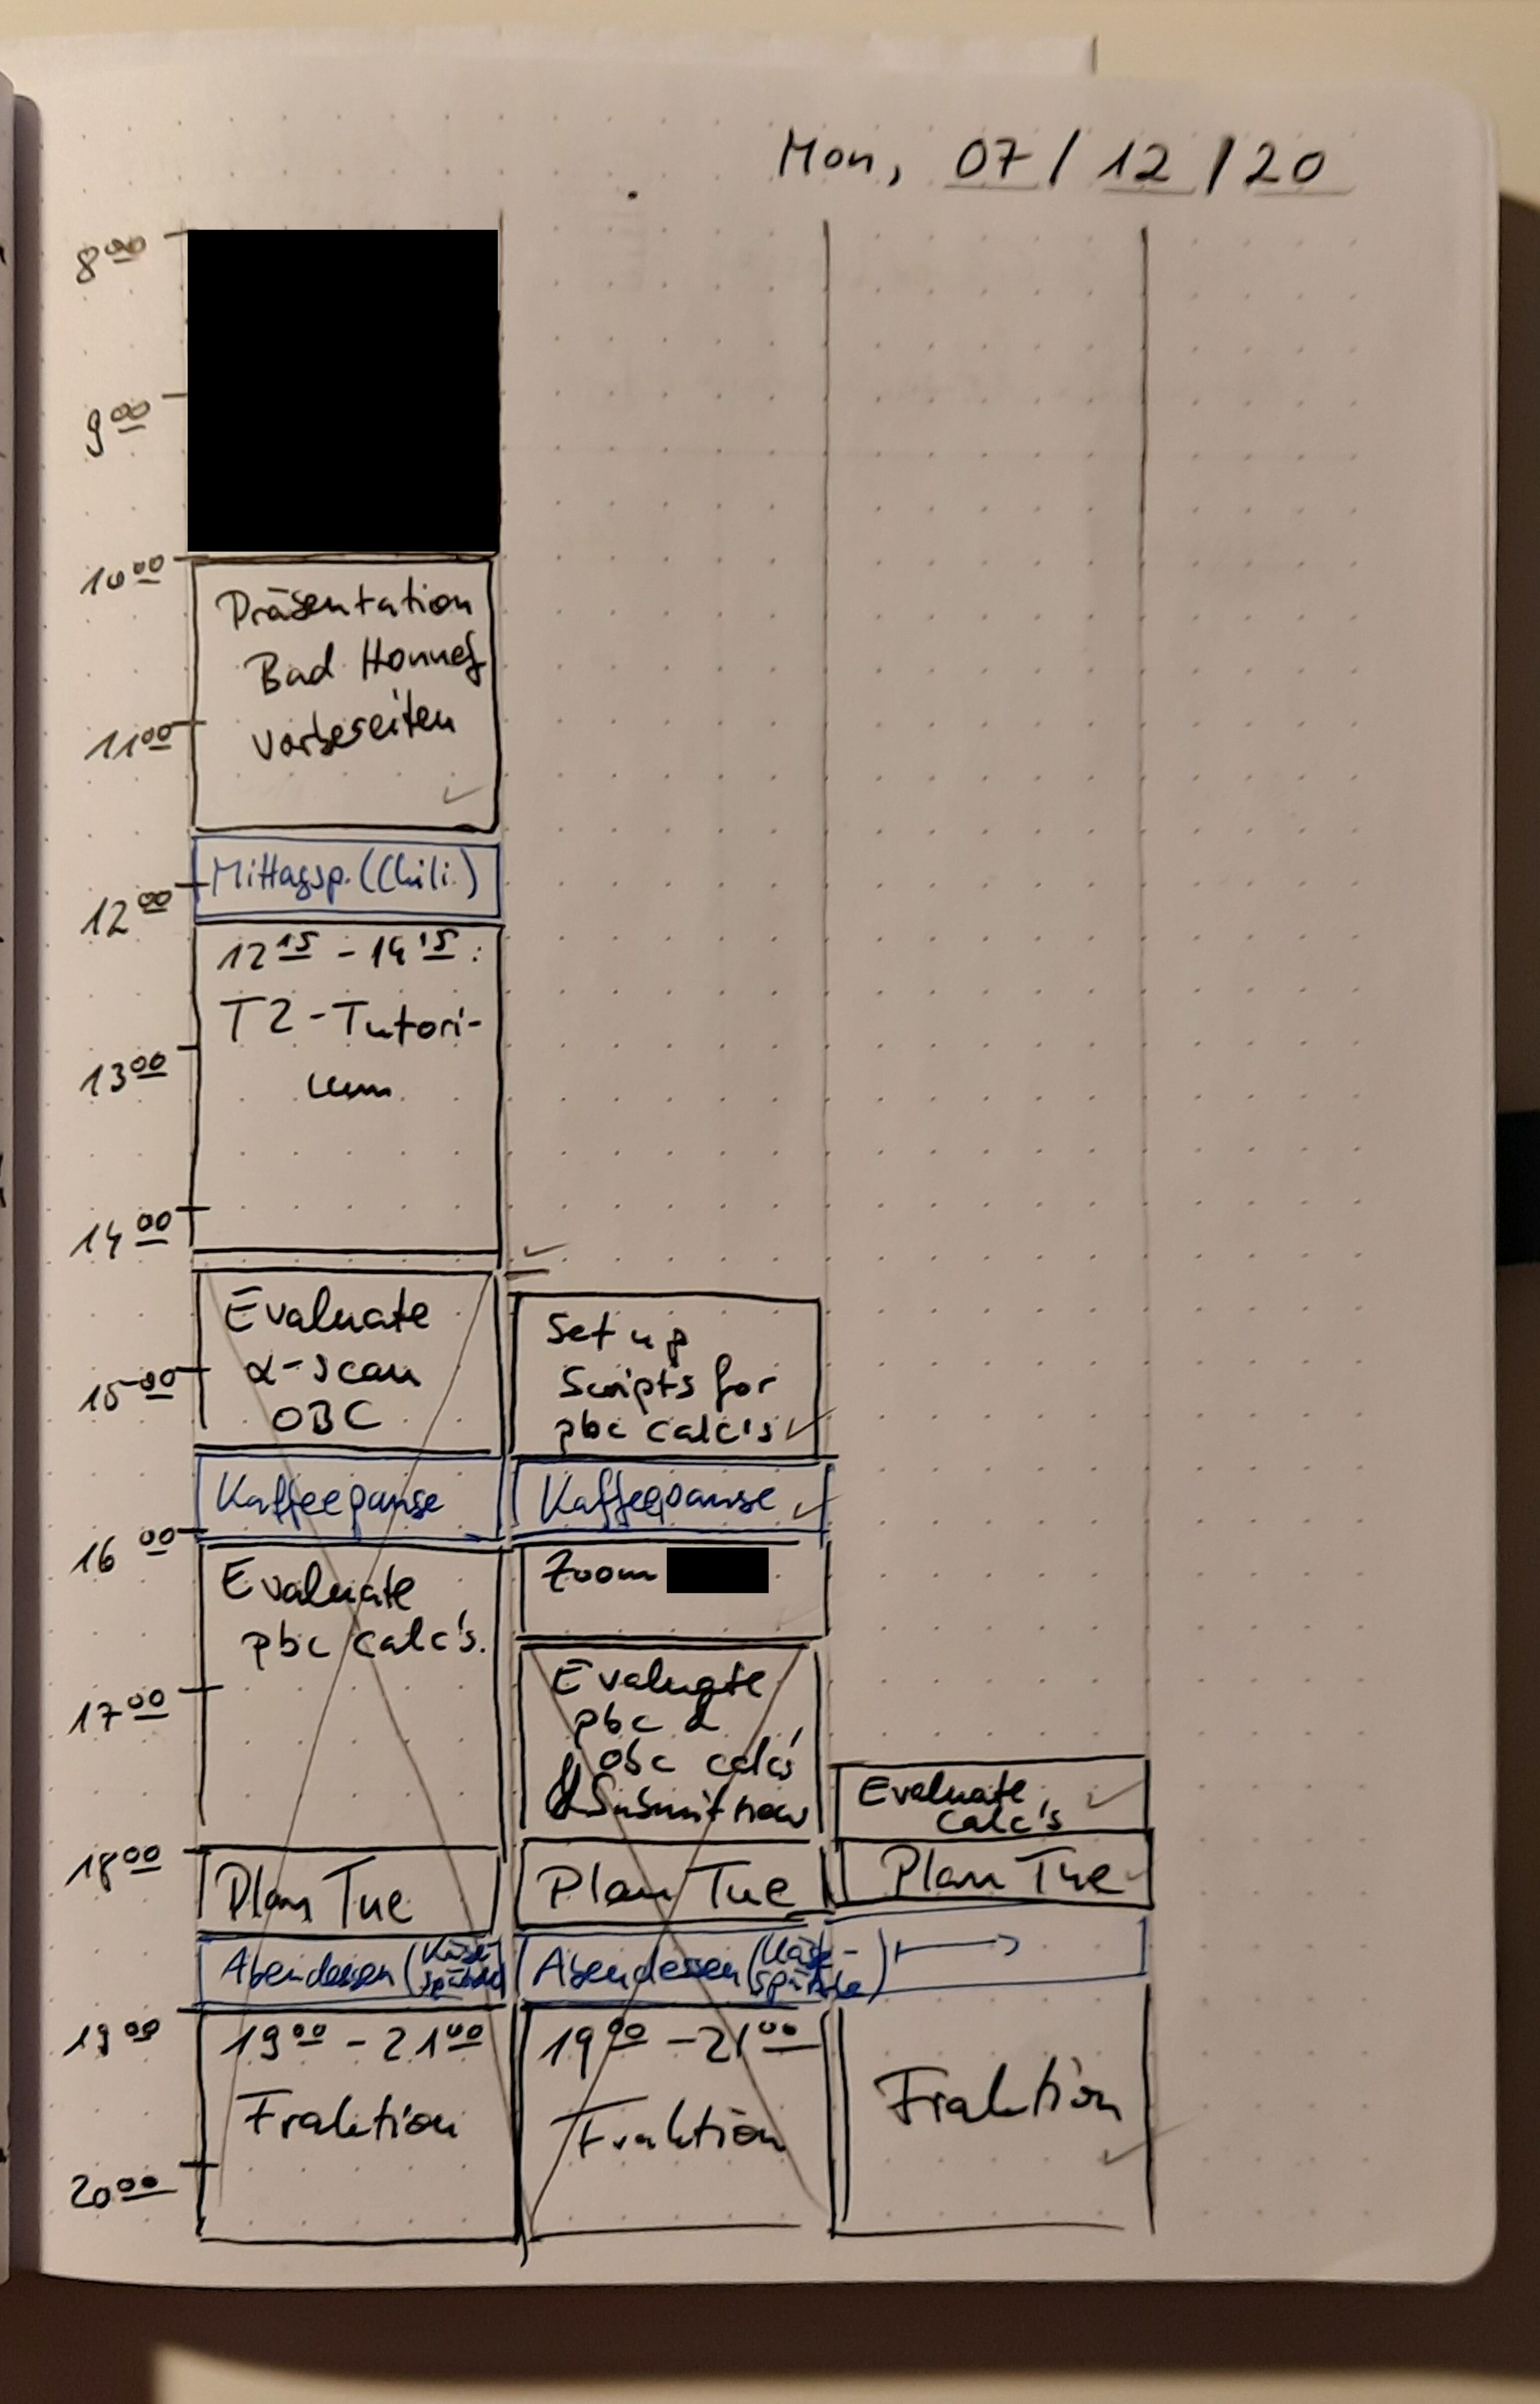 Mon, 07/12/20
8 00
9 00
10 00
Präsentation
Bad Honnef
vorbereiten
11 00
Mittagsp. (Chili)
12 00
12 15 - 14 15 :
T2-Tutori-
um
13 00
14 00
Evaluate
α-scan
OBC
15 00
Kaffeepause
16 00
Evaluate
pbc calc's.
17 00
18 00
Plan Tue
Abendessen (Käse-
spätzle)
19 00
19 00 - 21 00
Fraktion
20 00
Set up
Scripts for
pbc calc's
Kaffeepause
Zoom
Evaluate
pbc &
obc calc's
& Submit new
Plan Tue
Abendessen (Käse-
spätzle)
19 00 - 21 00
Fraktion
Evaluate
calc's
Plan Tue
Fraktion